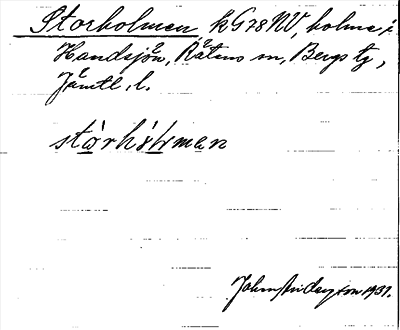 Storholmen, kG78NV, holme i
Handsjön, Rätans sn, Bergs tg,
Jämtl. l.
stòrhólman
John Anderzon 1931.